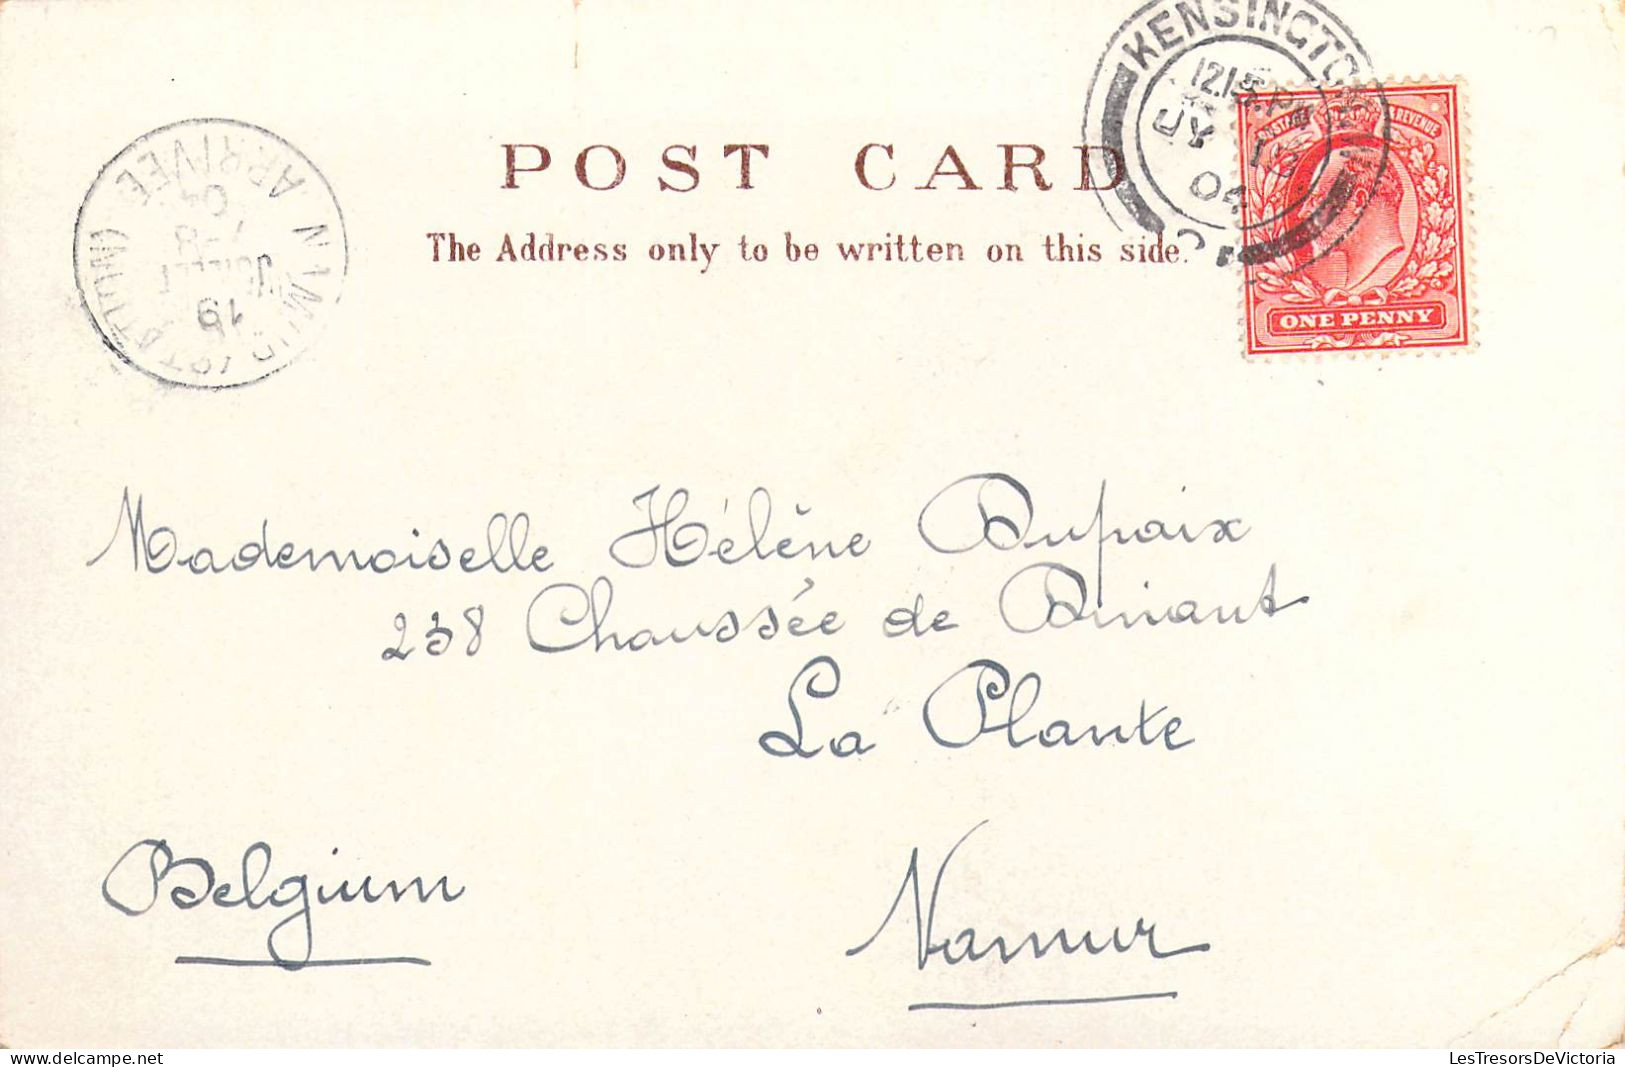 KENSINGTON
12.15 PM
JY 18
04
POSTAGE REVENUE
POST CARD
The Address only to be written on this side.
ONE PENNY
NAMUR (STATION)
ARRIVÉE
19
JUILLET
04
Mademoiselle Hélène Dupaix
238 Chaussée de Dinant
La Plante
Namur
Belgium
LesTresorsDeVictoria